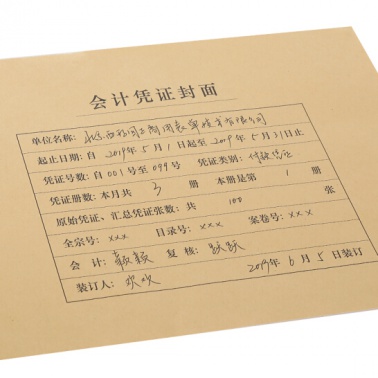 会计凭证封面
单位名称: 北京西玛同, 技术有限公司
起止日期: 自 2019年5月1日起至 2019年5月31日止
凭证号数: 自 001号至 099号 凭证类别: 付款凭证
凭证册数: 本月共 3 册 本册是第 1 册
原始凭证、汇总凭证张数: 共 100 张
全宗号: xxx 目录号: xxx 案卷号: xxx
会 计: 颖颖 复 核: 跃跃
装订人: 欢欢 2019年6月5日装订